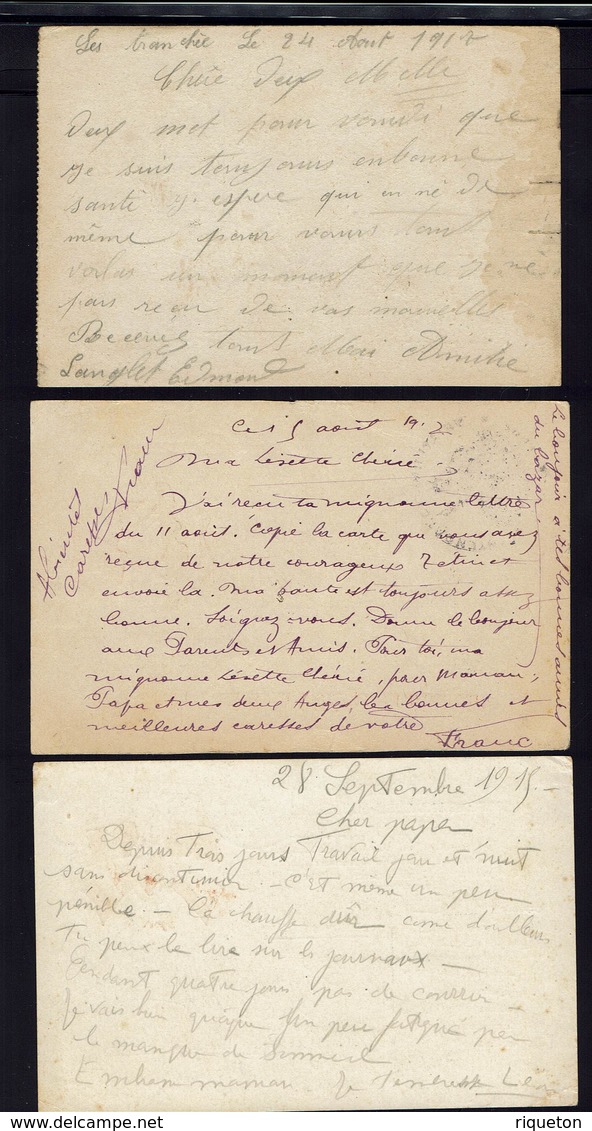 Les tranchée Le 24 Aout 1917
Chéie deux M Melle
deux mot pour vous di que
je suis toujours en bonne
santé j espere qui en né de
même pour vous tout
voilas un moment que je né
pas recu de vos nouvelles
Recevéz tout Moi Amitié
Langlet Edmond
Ce 15 août 19
Ma Lisette Chérie
J'ai reçu ta mignonne lettre
du 11 août. Copie la carte que vous avez
reçue de notre courageux et
envoie la. Ma santé est toujours assez
bonne. Soignez-vous. Donne le bonjour
aux Parents et Amis. Pour toi, ma
mignonne Lisette Chérie, pour Maman,
Papa et mes deux Anges, les bonnes et
meilleures caresses de votre
Franc
Le bonjour à tes bonnes amies
du bazar
A bientôt
Caresses
Franc
28 Septembre 1915 -
Cher papa
Depuis Trois jours Travail jour et nuit
sans discontinuer - C'est même un peu
pénible - Ca chauffe dûr come d'ailleurs
Tu peux le lire sur les journaux -
Pendant quatre jours pas de courrier -
Je vais bien quoique un peu fatigué par
le manque de Sommeil
Embrasse maman Je t'embrasse Léon
riqueton